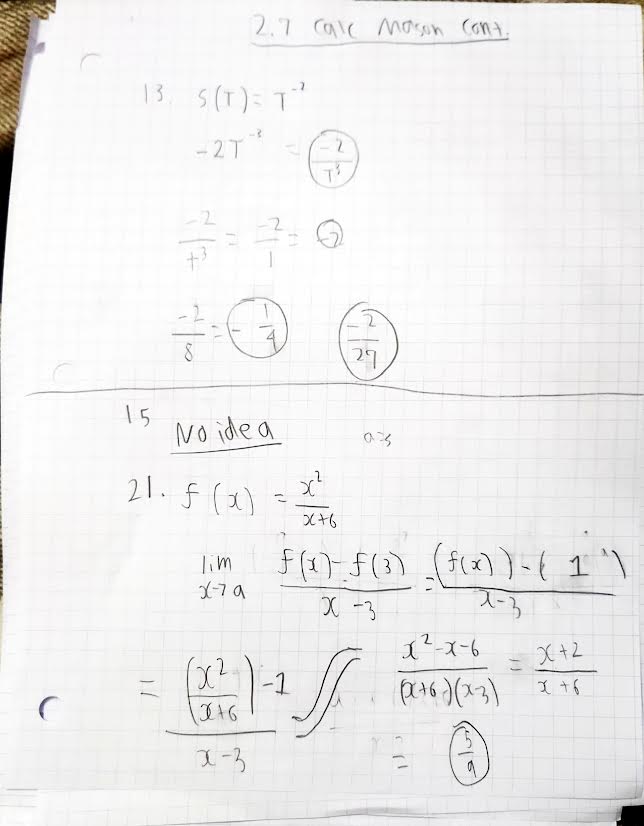 2.7 Calc Mason Cont.
13. S(T) = T^-2
-2T^-3 = -2/T^3
-2/t^3 = -2/1 = -2
-2/8 = -1/4 -2/27
15 No idea a=3
21. f(x) = x^2/(x+6)
lim x→a (f(x)-f(3))/(x-3) = ((f(x))-(1))/(x-3)
= ((x^2/(x+6))-1)/(x-3) (x^2-x-6)/((x+6)(x-3)) = (x+2)/(x+6)
= 5/9